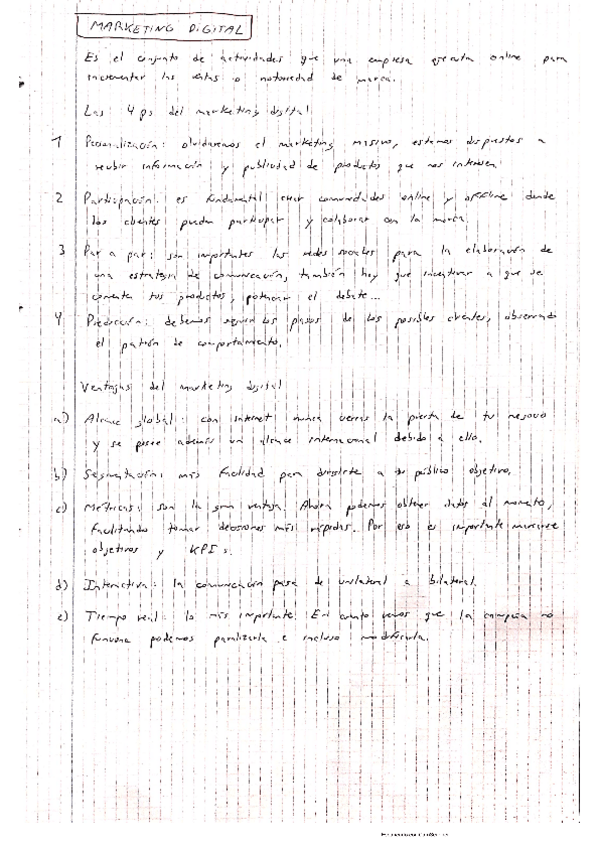 MARKETING DIGITAL
Es el conjunto de actividades que una empresa ejecuta online para
incrementar las ventas o notoriedad de marca.
Las 4 ps del marketing digital
1 Personalización: olvidaremos el marketing masivo, estamos dispuestos a
recibir información y publicidad de productos que nos interesen
2 Participación: es fundamental crear comunidades online y offline donde
los clientes puedan participar y colaborar con la marca.
3 Par a par: son importantes las redes sociales para la elaboración de
una estrategia de comunicación, también hay que incentivar a que se
comenta tus productos, potenciar el debate...
4 Predicción: debemos seguir los pasos de los posibles clientes, observando
el patrón de comportamiento.
Ventajas del marketing digital
a) Alcance global: con internet nunca cerras la puerta de tu negocio
y se posee además un alcance internacional debido a ello.
b) Segmentación: más facilidad para dirigirte a tu público objetivo.
c) Métricas: son la gran ventaja. Ahora podemos obtener datos al momento,
facilitando tomar decisiones más rápidas. Por eso es importante marcarse
objetivos y KPIs.
d) Interactiva: la comunicación pasa de unilateral a bilateral.
e) Tiempo real: lo más importante. En cuanto vemos que la campaña no
funciona podemos paralizarla e incluso modificarla.